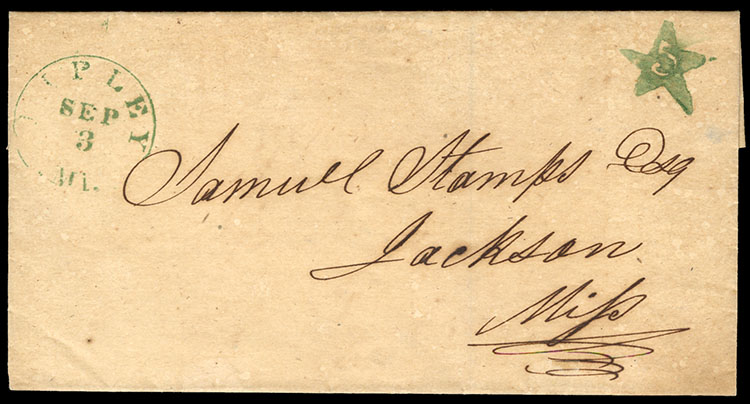 5
RIPLEY
SEP
3
Mi.
Samuel Stamps Esq
Jackson
Miss